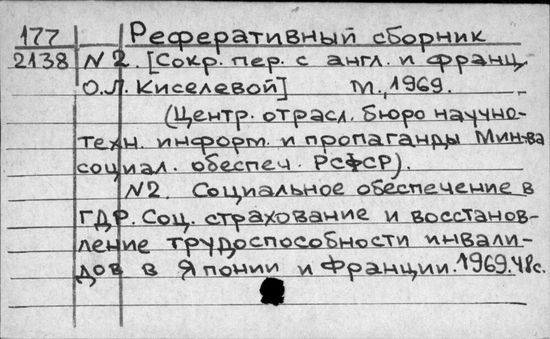 177 Реферативный сборник
2138 N2. [Сокр. пер. с англ. и франц.
О.Л. Киселевой] М., 1969.
(Центр. отрасл. бюро научно-
техн. информ. и пропаганды Мин-ва
социал. обеспеч. РСФСР).
N2. Социальное обеспечение в
ГДР. Соц. страхование и восстанов-
ление трудоспособности инвали-
дов в Японии и Франции. 1969. 48с.